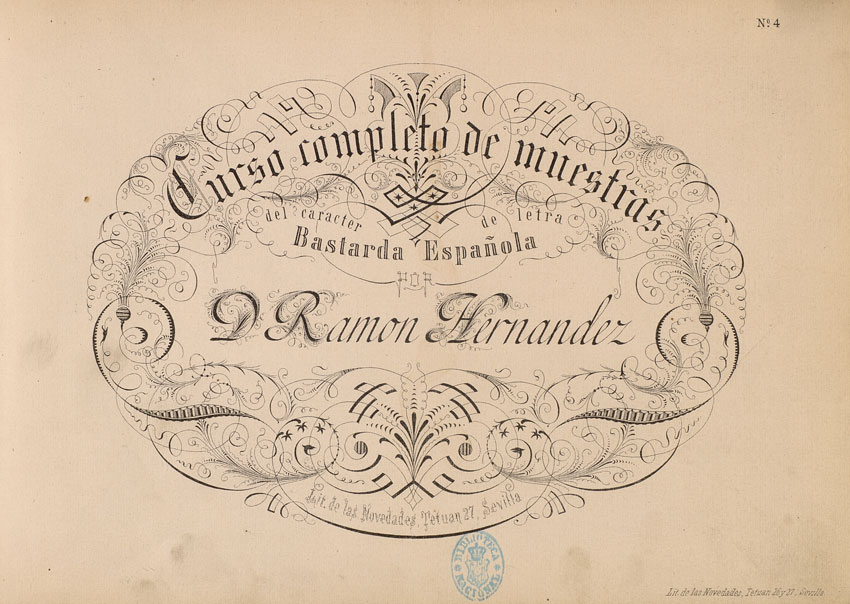 Nº 4
Curso completo de muestras
del caracter de letra
Bastarda Española
POR
D Ramon Hernandez
Lit. de las Novedades, Tetuan 27, Sevilla
BIBLIOTECA NACIONAL
Lit. de las Novedades, Tetuan 27, Sevilla